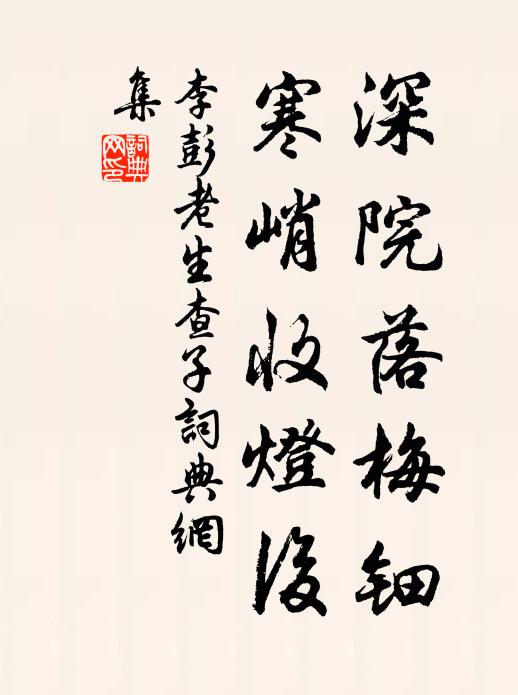 深院落梅钿
寒峭收燈後
李彭老生查子詞典網
集
詞典网